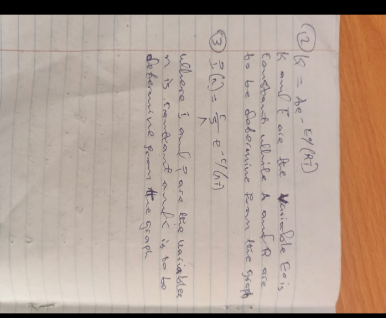 ② K = Ae^-Ea/(RT)
K and T are the variable Ea is
constant while A and R are
to be determine from the graph
③
where i and r are the variables
n is constant and c is to be
determine from the graph